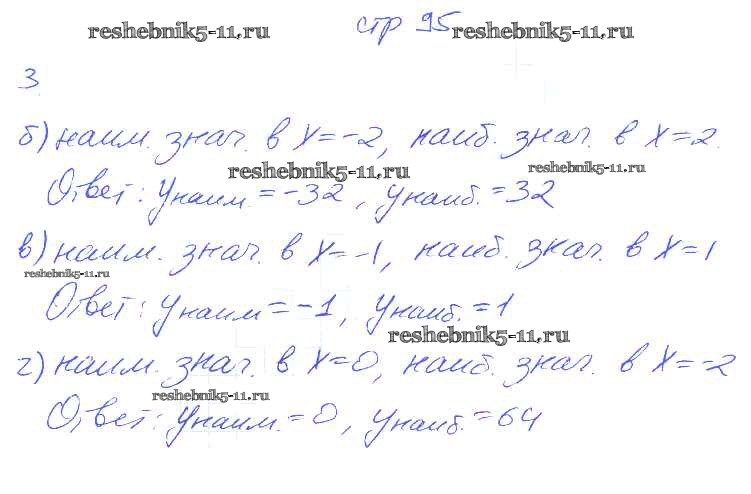 reshebnik5-11.ru стр 95 reshebnik5-11.ru
3
б) наим. знач. в x=-2, наиб. знач. в x=2.
reshebnik5-11.ru reshebnik5-11.ru
Ответ: yнаим.=-32, yнаиб.=32
в) наим. знач. в x=-1, наиб. знач. в x=1
reshebnik5-11.ru
Ответ: yнаим=-1, yнаиб.=1
reshebnik5-11.ru
г) наим. знач. в x=0, наиб. знач. в x=-2
reshebnik5-11.ru
Ответ: yнаим.=0, yнаиб.=64